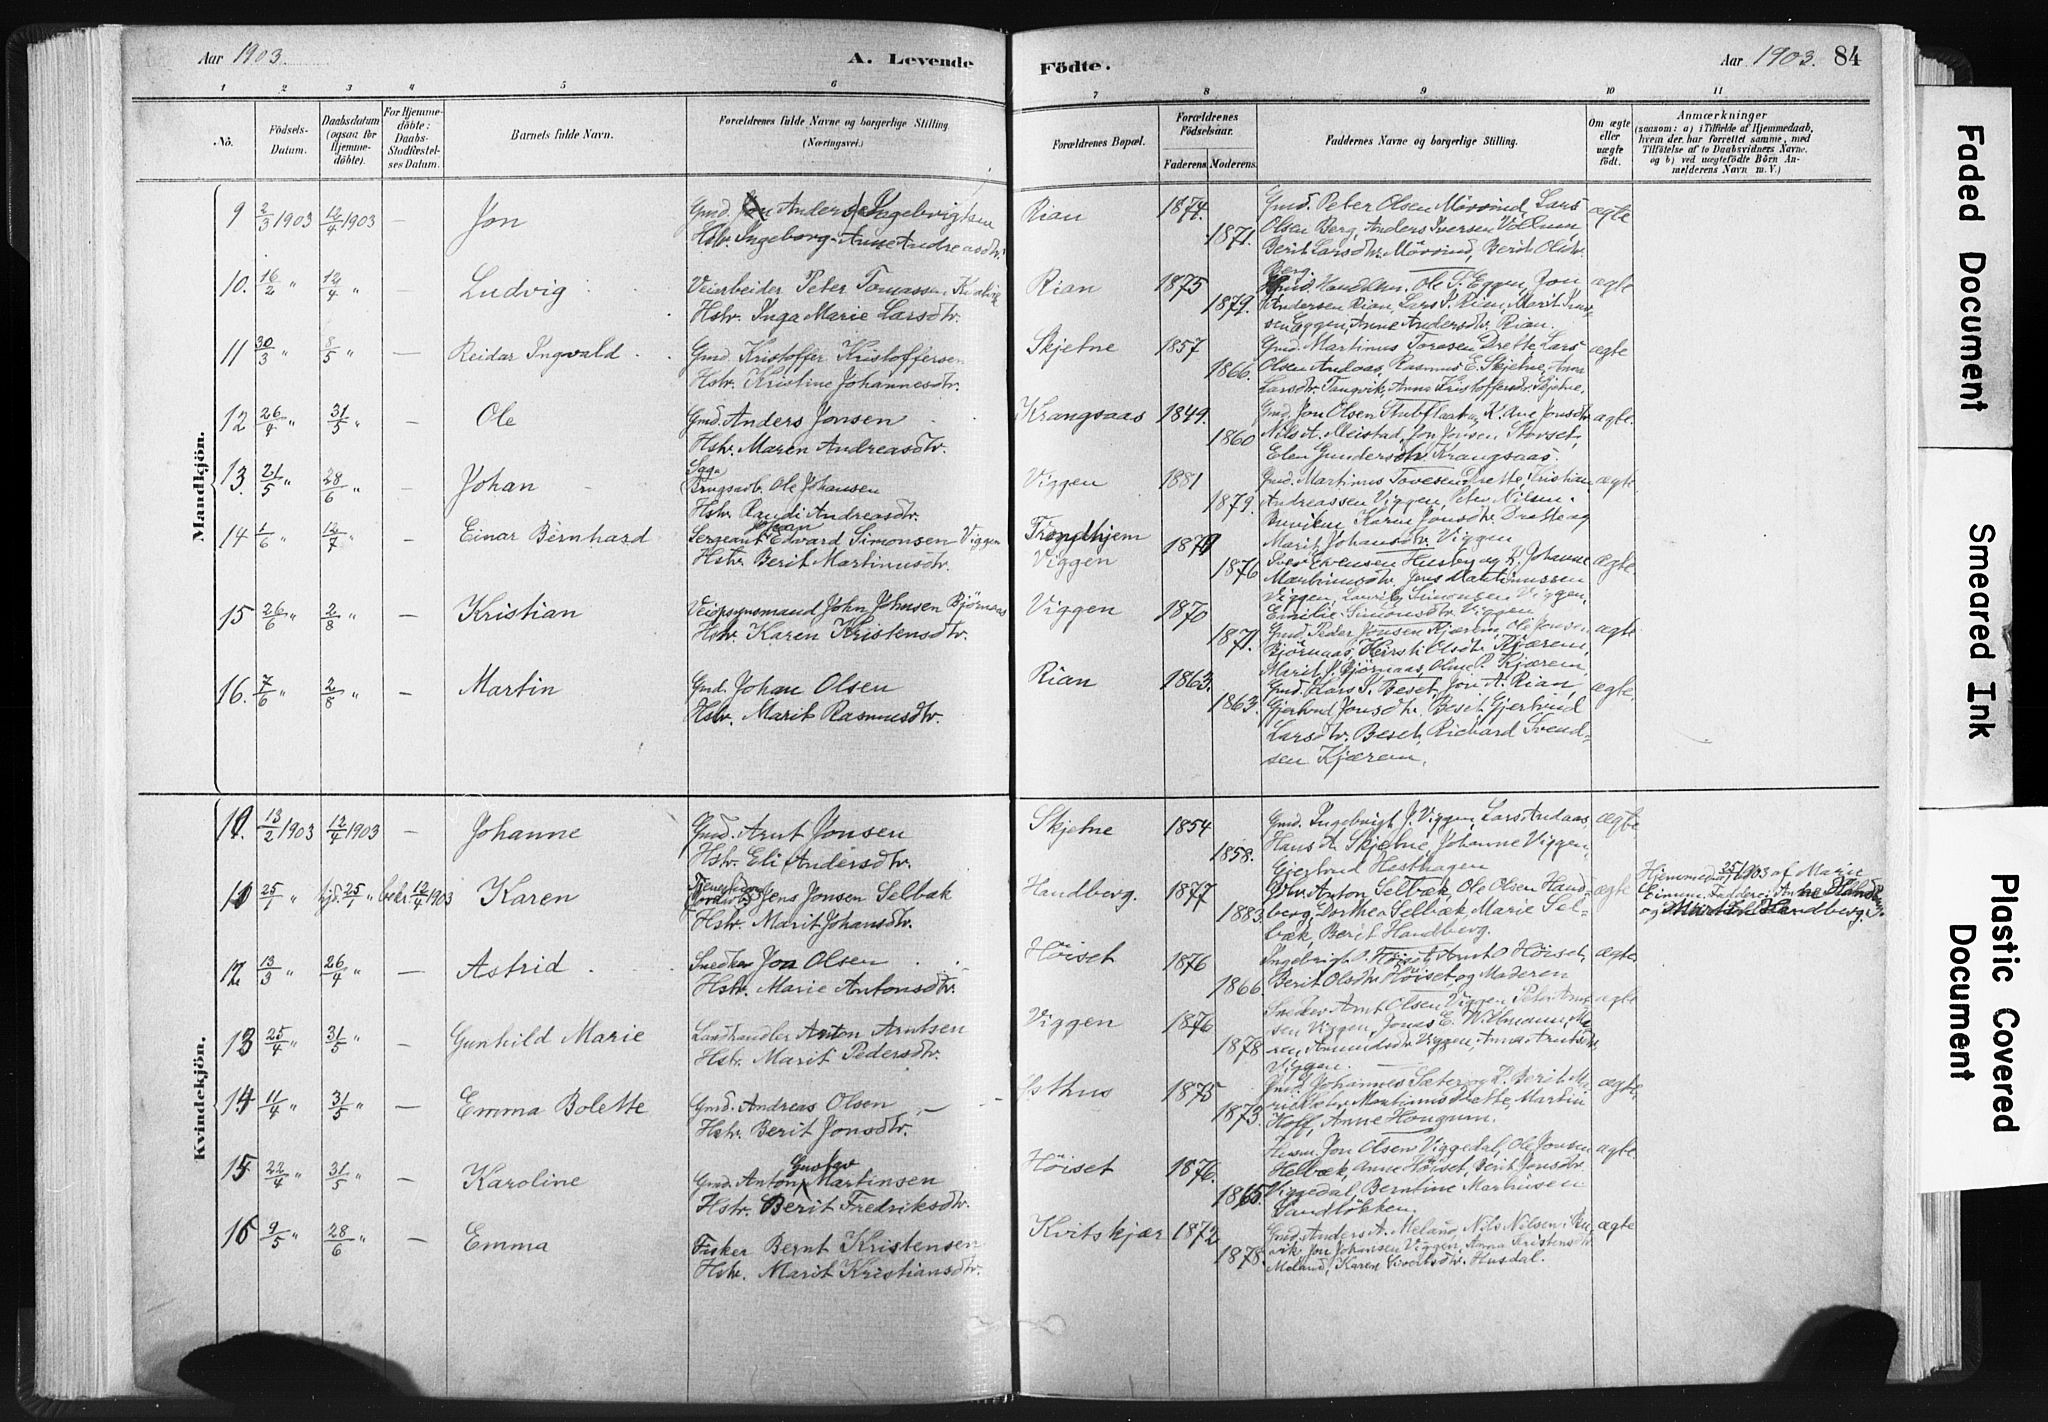 Aar 1903. A. Levende Födte. Aar 1903. 84
1 2 3 4 5 6 7 8 9 10 11
No. Födsels-Datum. Daabsdatum (ogsaa for Hjemme-döbte). For Hjemme-döbte: Daabs-Stadfæstel-ses Datum. Barnets fulde Navn. Forældrenes fulde Navne og borgerlige Stilling (Næringsvei.) Forældrenes Bopæl. Forældrenes Födselsaar. Faderens. Moderens. Faddernes Navne og borgerlige Stilling. Om ægte eller uægte födt. Anmærkninger (saasom: a) i Tilfælde af Hjemmedaab, hvem der har forrettet samme, med Tilföielse af to Daabsvidners Navne, og b) ved uægtefödte Börn An-melderens Navn m. V.)
Mandkjön.
9 2/3 1903 12/4 1903 — Jon Gmd. Anders Ingebrigtsen Rian 1874. Gmd. Peter Olsen Mövind, Lars ægte
Hstr. Ingeborg Anne Andreasdtr. 1871. Olsen Berg, Anders Iversen Vollum
Berit Larsdtr. Mövind, Berit Olsdtr.
Berg.
10. 16/2 " 12/4 " — Ludvig Veiarbeider Peter Tomassen Rian 1875 Ole S. Eggen, Jon ægte
Hstr. Inga Marie Larsdtr. 1879. Andersen Rian, Lars P. Rian, Marit
Eggen, Anne Andersdtr. Rian.
11 30/3 " 8/5 " — Reidar Ingvald Gmd. Kristoffer Kristoffersen Skjetne 1857 Gmd. Martinus Toresen Drette Lars ægte
Hstr. Kristine Johannesdtr. 1866. Olsen Andaas, Rasmus E. Skjetne, Anna
Larsdtr. Tangvik, Anna Kristoffersdtr. Skjetne.
12 26/4 " 31/5 " — Ole Gmd. Anders Jonsen Krangsaas 1849. Gmd. Jon Olsen Stubflaat og K. Ane Jonsdtr. ægte.
Hstr. Maren Andreasdtr. 1860 Nils A. Meistad, Jon Jonsen Storset,
Elen Gundersdtr. Krangsaas.
13. 21/5 " 28/6 " Johan Sagbrugsarb. Ole Johansen Viggen 1881 Gmd. Martinus Tovesen Drette, Kristian ægte
Hstr. Randi Andreasdtr. 1879. Andreassen Viggen, Peter Nilsen
Buviken Karen Jonsdtr. Drette og
Marit Johansdtr. Viggen
14 1/6 " 12/7 " — Einar Bernhard Sergeant Johan Edvard Simonsen Viggen Trondhjem Viggen 1870
Hstr. Berit Martinusdtr. 1876 Iver Evensen Husby og K. Johanne ægte
Martinusdtr., Jens Martinussen
Viggen, Lauritz Simonsen Viggen,
Emilie Simonsdtr. Viggen
15 26/6 " 2/8 " — Kristian Veiopsynsmand John Johnsen Björnaas Viggen 1870 Gmd. Peder Jonsen Kjærem, Ole Jonsen ægte
Hstr. Karen Kristensdtr. 1871. Björnaas, Kirsti Olsdtr. Kjærem,
Marit P. Björnaas, Oline P. Kjærem
16. 7/6 " 2/8 " — Martin Gmd. Johan Olsen Rian 1863. Gmd. Lars P. Beset, Jon A. Rian, ægte.
Hstr. Marit Rasmusdtr. 1863. Gjertrud Jonsdtr. Beset, Gjertrud
Larsdtr. Beset, Richard Svend-
sen Kjærem.
Kvindekjön.
10. 13/2 1903 12/4 1903 — Johanne Gmd. Arnt Jonsen Skjetne 1854 Gmd. Ingebrigt J. Viggen, Lars Andaas, ægte
Hstr. Eli Andersdtr. 1858. Hans A. Skjetne, Johanne Viggen,
Gjertrud Hesthagen
11 25/1 " hjd. 25/1 " bekr. 12/4 1903 Karen Jens Jonsen Selbæk Handberg. 1877 Anton Selbæk, Ole Olsen Hand- ægte Hjemmedöbt 25/1 1903 af Marie
Hstr. Marit Johansdtr. 1883 berg, Dorthea Selbæk, Marie Sel- Faddere: Anne Handberg
bæk, Berit Handberg. og Handberg.
12 13/3 " 26/4 " — Astrid Snedker Jon Olsen Höiset 1876 Ingebrigt O. Höiset, Arnt O. Höiset, ægte
Hstr. Marie Antonsdtr. 1866 Berit Olsdtr. Höiset og Moderen
13 25/4 " 31/5 " — Gunhild Marie Landhandler Anton Arntsen Viggen 1876 Snedker Arnt Olsen Viggen, Peter Arnt- ægte
Hstr. Marit Pedersdtr. 1878 sen Viggen, Jonas E. Wilmann, Ma-
ren Amundsdtr. Viggen, Anna Arntsdtr.
Viggen.
14 11/4 " 31/5 " — Emma Bolette Gmd. Andreas Olsen Isthus 1875 Gmd. Johannes Sæter og K. Berit ægte
Hstr. Berit Jonsdtr. 1873. Martinus Drette, Martin
Hoff, Anne Hongrum.
15 22/4 " 31/5 " — Karoline Gmd. Anton Gustav Martinsen Höiset 1876. Husm. Jon Olsen Viggedal, Ole Jonsen ægte
Hstr. Berit Fredriksdtr. 1865. Helbæk, Anne Höiset, Berit Jonsdtr.
Viggedal, Berntine Marhusen
Sandlökken.
16 9/5 " 28/6 " — Emma Fisker Bernt Kristensen Kvitskjær 1872 Gmd. Anders A. Meland, Nils Nilsen Bu- ægte
Hstr. Marit Kristiansdtr. 1878. vik, Jon Johansen Viggen, Anna Kristensdtr.
Meland, Karen Husdal.
Faded Document
Smeared Ink
Plastic Covered Document